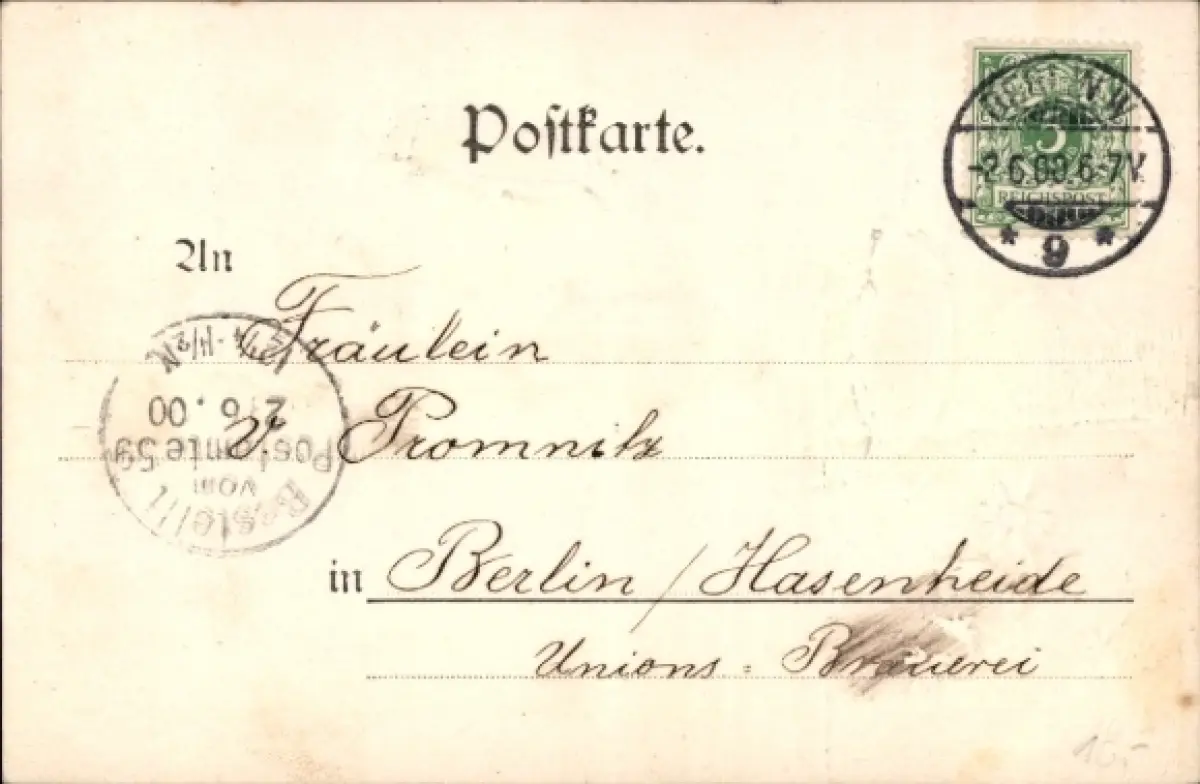 Postkarte.
BERLIN W
5
-2.6.00.6-7V.
REICHSPOST
* 9 *
An
Fräulein
v. Promnitz
in Berlin / Hasenheide
Unions = Brauerei
Bestellt
vom
Postamte 59
2/6.00
10,-